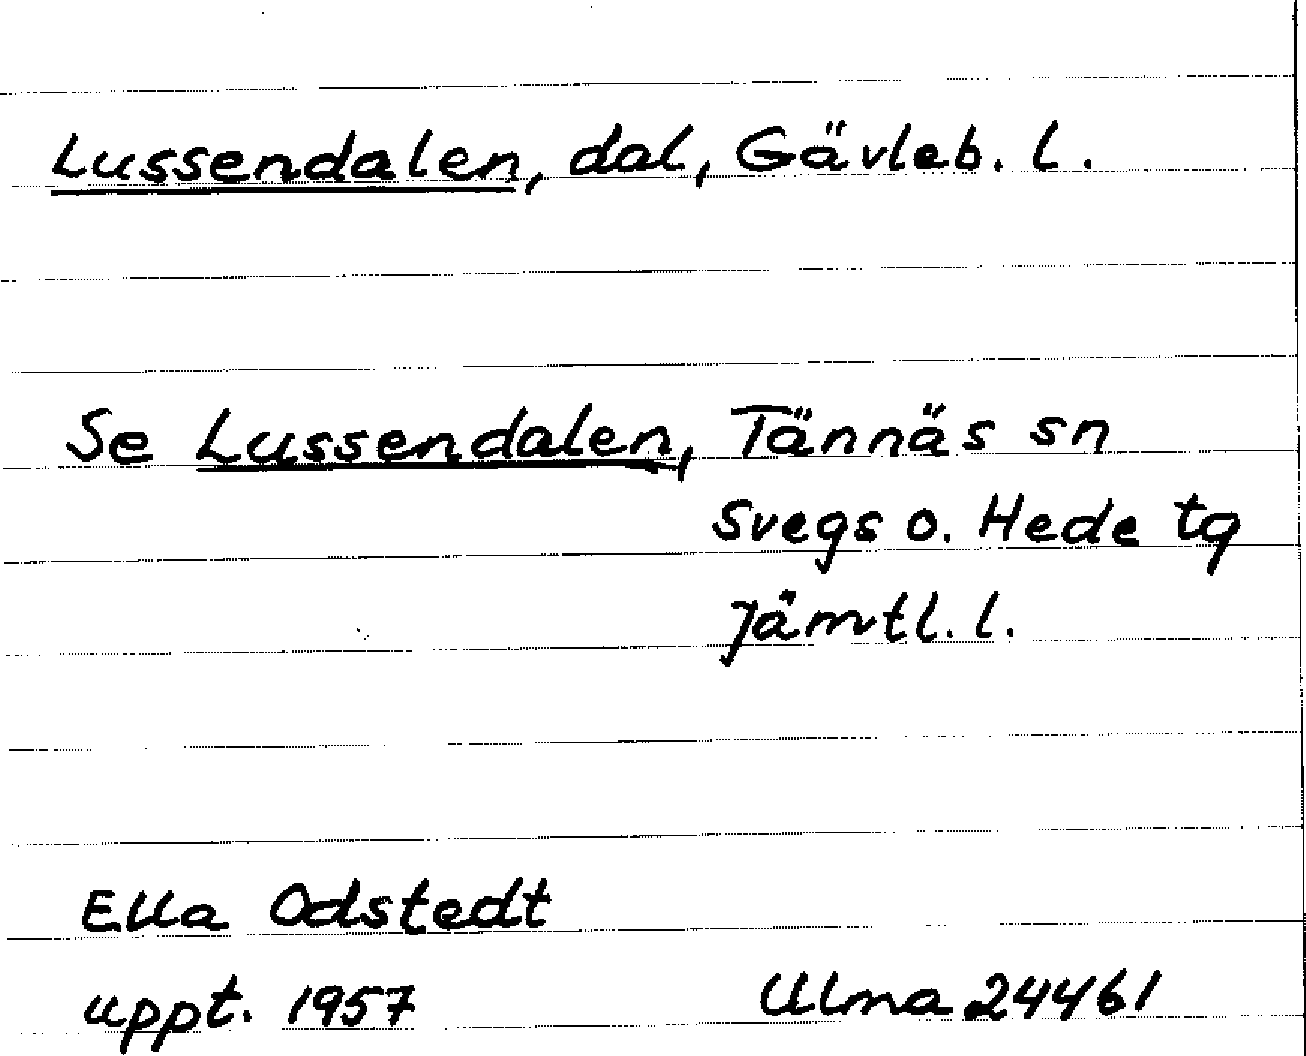 Lussendalen, dal, Gävleb. l.
Se Lussendalen, Tännäs sn
Svegs o. Hede tg
Jämtl. l.
Ella Odstedt
uppt. 1957 Ulma 24461